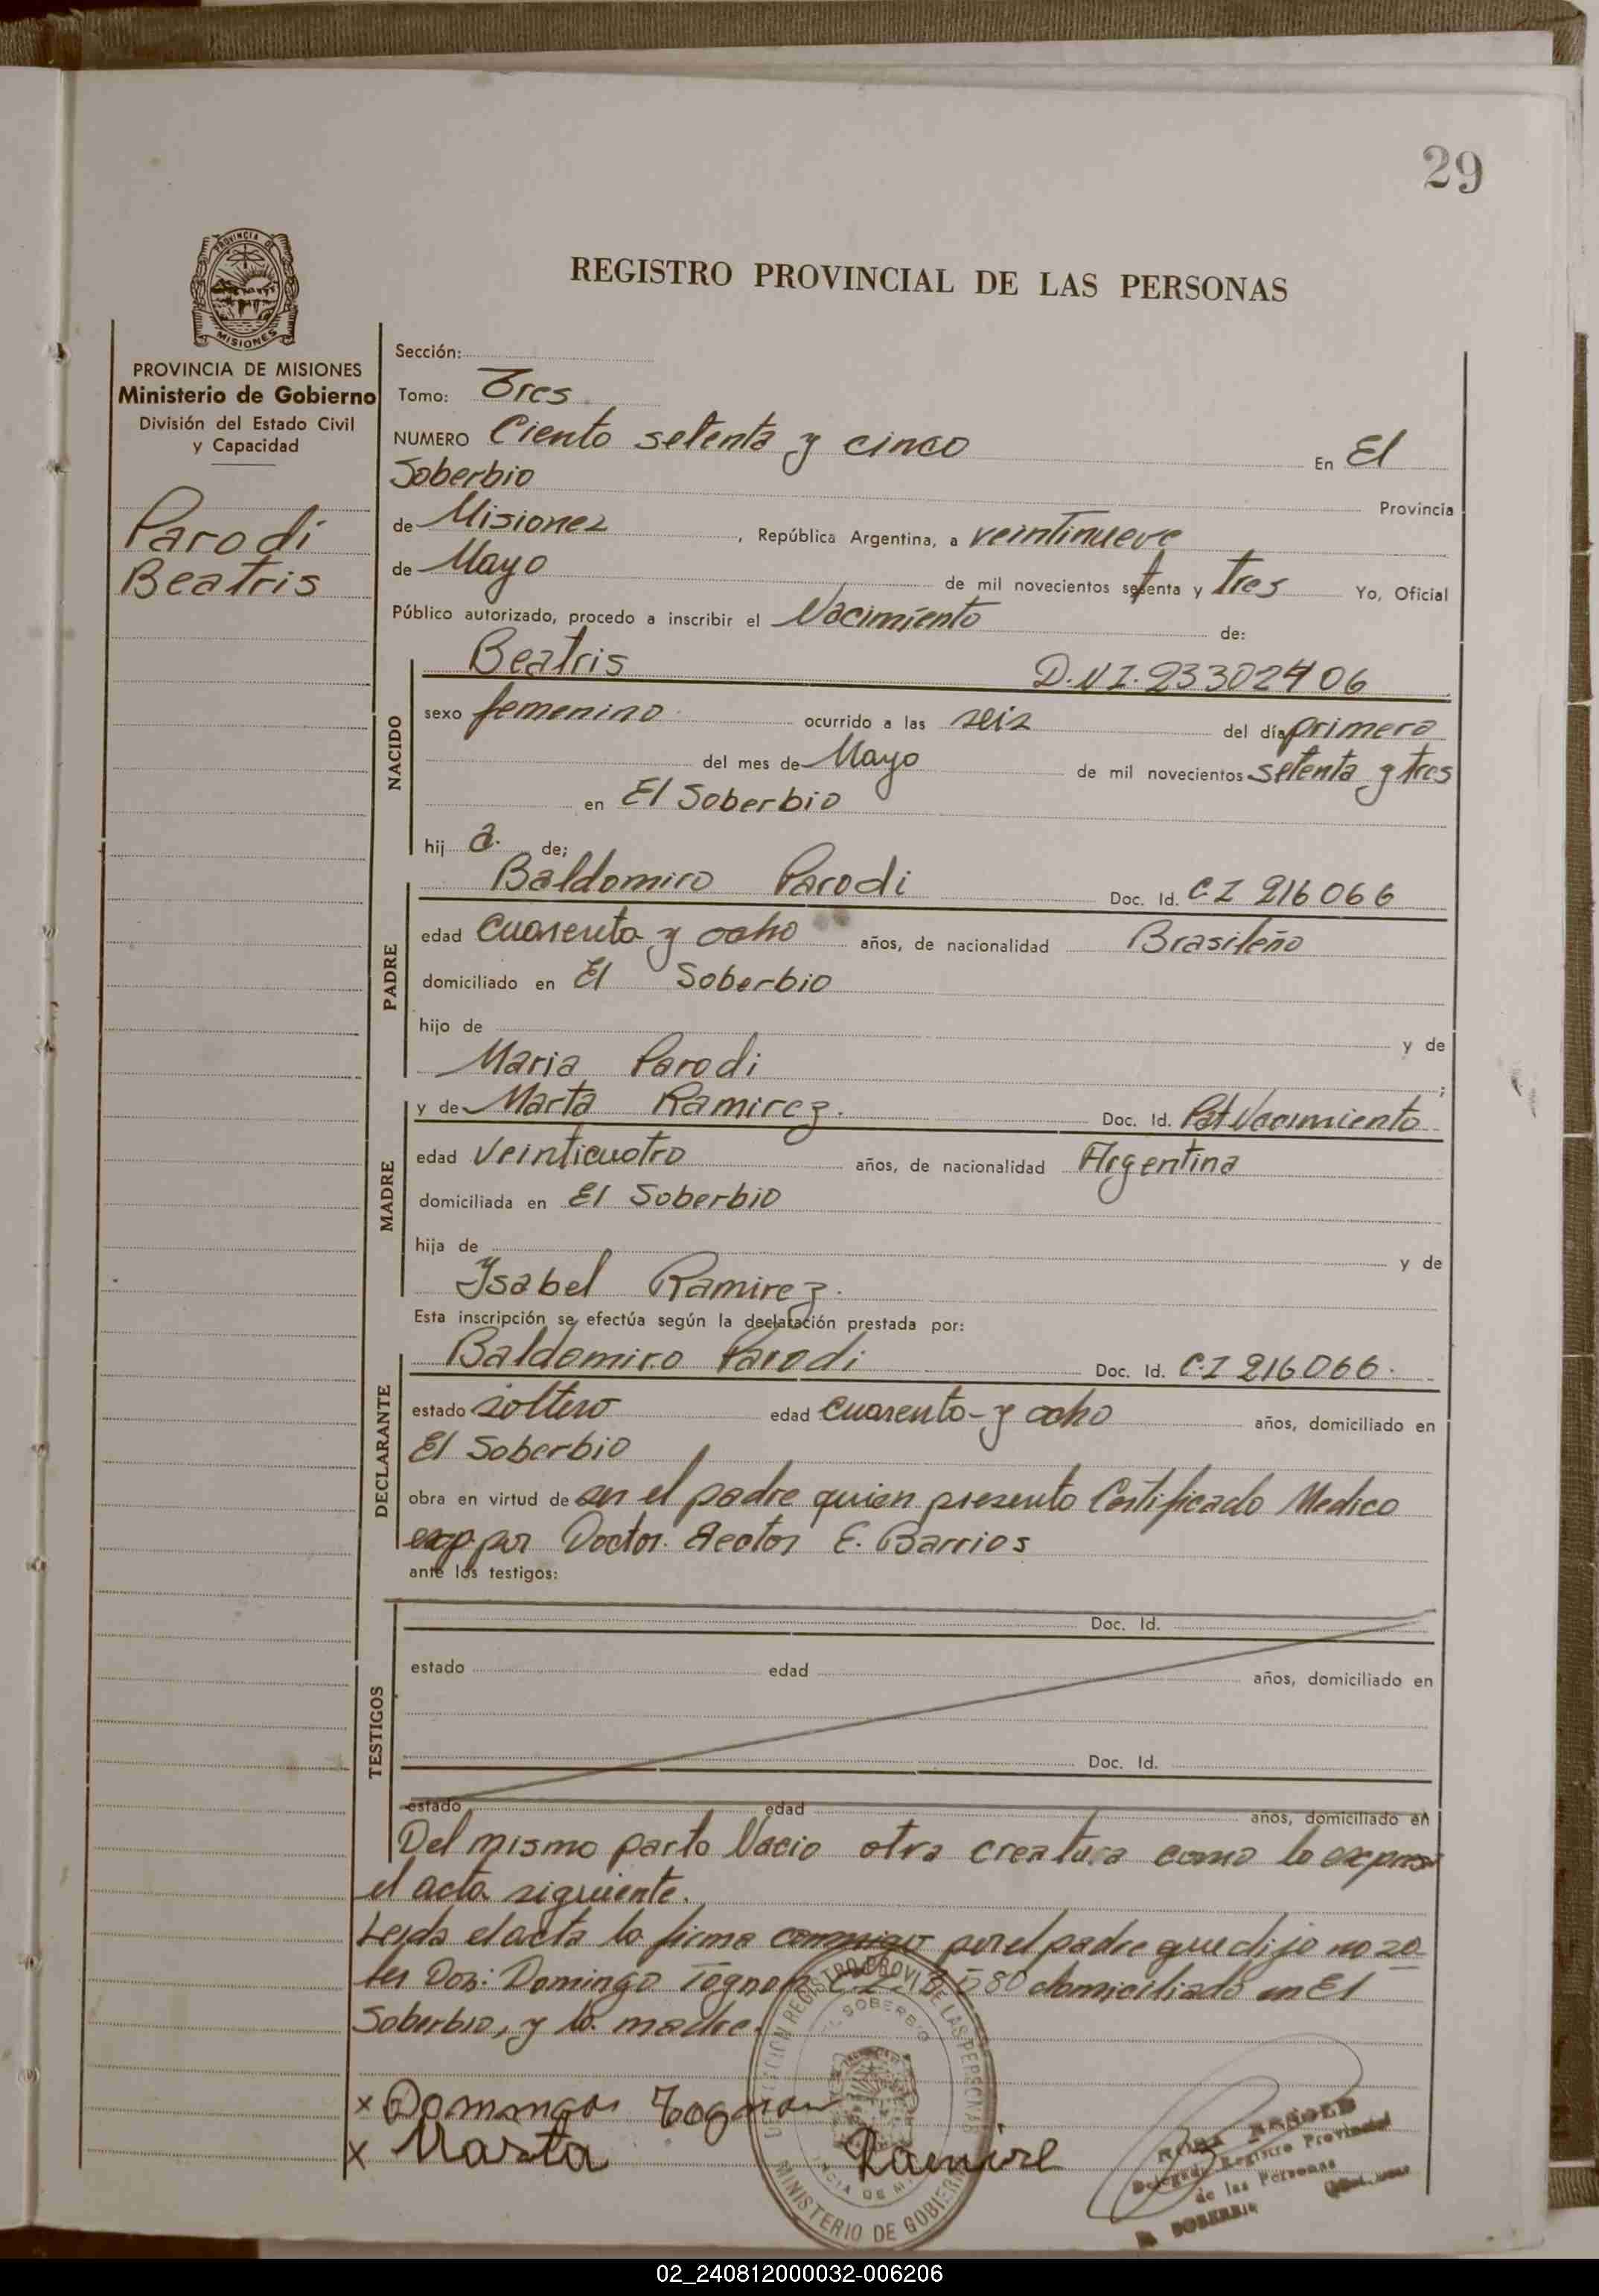 29
PROVINCIA DE
MISIONES
REGISTRO PROVINCIAL DE LAS PERSONAS
PROVINCIA DE MISIONES
Ministerio de Gobierno
División del Estado Civil
y Capacidad
Parodi
Beatris
Sección:
Tomo: Tres
NUMERO Ciento setenta y cinco En El
Soberbio Provincia
de Misiones, República Argentina, a veintinueve
de Mayo de mil novecientos setenta y tres Yo, Oficial
Público autorizado, procedo a inscribir el Nacimiento de:
NACIDO
Beatris D.N.I. 23302406
sexo femenino ocurrido a las seis del día primero
del mes de Mayo de mil novecientos setenta y tres
en El Soberbio
hij a. de;
PADRE
Baldomiro Parodi Doc. Id. C.I 216066
edad cuarenta y ocho años, de nacionalidad Brasileño
domiciliado en El Soberbio
hijo de y de
Maria Parodi ;
MADRE
y de Marta Ramirez. Doc. Id. Nacimiento
edad veinticuatro años, de nacionalidad Argentina
domiciliada en El Soberbio
hija de y de
Ysabel Ramirez.
Esta inscripción se efectúa según la declaración prestada por:
DECLARANTE
Baldomiro Parodi Doc. Id. C.I 216066.
estado soltero edad cuarenta y ocho años, domiciliado en
El Soberbio
obra en virtud de ser el padre quien presento Certificado Medico
exp. por Doctor. Hector E. Barrios
ante los testigos:
TESTIGOS
Doc. Id.
estado edad años, domiciliado en
Doc. Id.
estado edad años, domiciliado en
Del mismo parto Nacio otra creatura como lo expresa
el acta siguiente.
Leida el acta la firma conmigo por el padre que dijo no sa-
ber Don: Domingo Tognon C.I domiciliado en El
Soberbio, y la madre.
x Domingos Tognon
x Marta Ramire
DIRECCION REGISTRO PROVI. DE LAS PERSONAS
EL SOBERBIO
MINISTERIO DE GOBIERNO
Delegada Registro Provincial
de las Personas
EL SOBERBIO
02_240812000032-006206